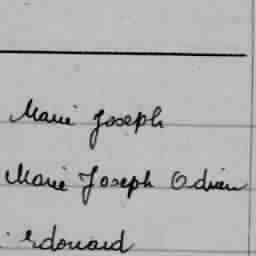 Marie Joseph
Marie Joseph Odrien
Edouard